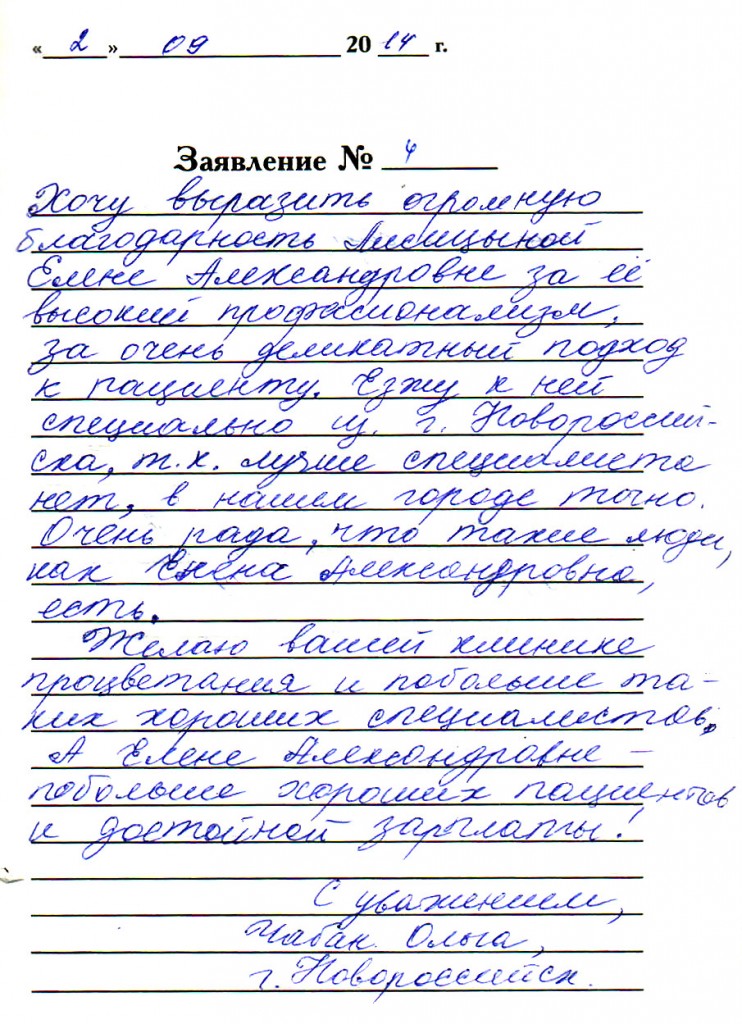 «2» 09 2014 г.
Заявление № 4
Хочу выразить огромную
благодарность Лисицыной
Елене Александровне за её
высокий профессионализм,
за очень деликатный подход
к пациенту. Езжу к ней
специально из. г. Новороссий-
ска, т.к. лучше специалиста
нет, в нашем городе точно.
Очень рада, что такие люди,
как Елена Александровна,
есть.
Желаю вашей клинике
процветания и побольше та-
ких хороших специалистов,
А Елене Александровне –
побольше хороших пациентов
и достойной зарплаты!
С уважением,
Чабан Ольга,
г. Новороссийск.